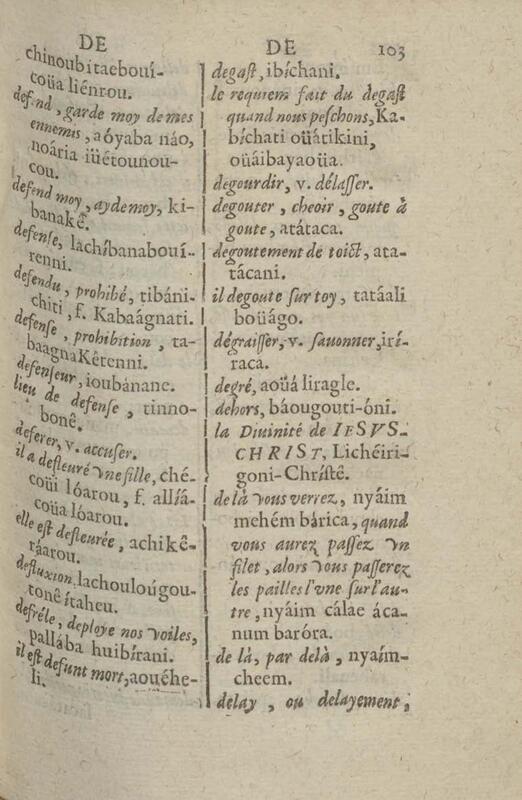 DE
chinoubitaebouí-
coüa liénrou.
defend, garde moy de mes
ennemis, aóyaba náo,
noária iüétounou-
cou.
defend moy, aydemoy, ki-
banakê.
defense, lachíbanabouí-
renni.
defendu, prohibé, tibáni-
chiti, f. Kabaágnati.
defense, prohibition, ta-
baagnaKêtenni.
defenseur, ioubánane.
lieu de defense, tinno-
bonê.
deferer, v. accuser.
il a defleuré vne fille, ché-
coüi lóarou, f. allíá-
coüa lóarou.
elle est defleurée, achikê-
ráarou.
defluxion, lachoulougou-
tonê itaheu.
defréle, deploye nos voiles,
pallába huibírani.
il est defunt mort, aouéhe-
li.
DE 103
degast, ibíchani.
le requiem fait du degast
quand nous peschons, Ka-
bíchati oüátikini,
oüáibayaoüa.
degourdir, v. délasser.
degouter, cheoir, goute à
goute, atátaca.
degoutement de toict, ata-
tácani.
il degoute sur toy, tatáali
boüágo.
dégraisser, v. sauonner, irí-
raca.
degré, aoüá liragle.
dehors, báougouti-óni.
la Diuinité de IESVS-
CHRIST, Lichéiri-
goni-Chrístê.
de là vous verrez, nyáim
mehém bárica, quand
vous aurez passez vn
filet, alors vous passerez
les pailles l'vne sur l'au-
tre, nyáim cálae áca-
num baróra.
de là, par delà, nyaím-
cheem.
delay, ou delayement,